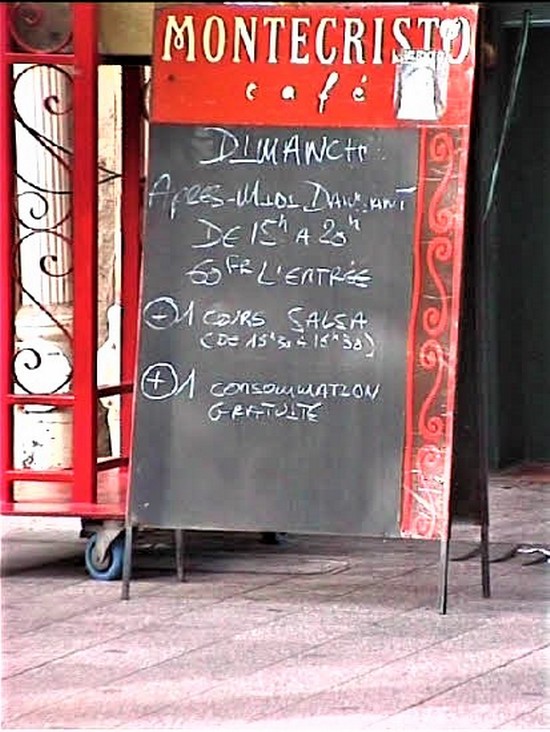 MONTECRISTO
café
DIMANCH
APRES-MIDI DANSANT
DE 15H A 20H
60FR L'ENTRÉE
+ 1 COURS SALSA
(DE 15H30 à 16H30)
+ 1 CONSOMMATION
GRATUITE